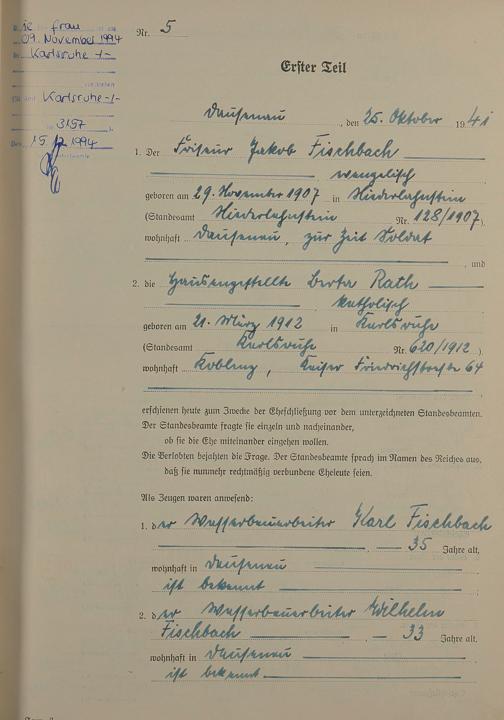 ie Frau
09. November 1994
Karlsruhe -/-
Karlsruhe -/-
3157
15. 12. 1994
Nr. 5
Erster Teil
Dausenau, den 25. Oktober 1941
1. Der Friseur Jakob Fischbach
evangelisch
geboren am 29. November 1907 in Niederlahnstein
(Standesamt Niederlahnstein Nr. 128/1907),
wohnhaft Dausenau, zur Zeit Soldat
, und
2. die Hausangestellte Berta Rath
katholisch
geboren am 21. März 1912 in Karlsruhe
(Standesamt Karlsruhe Nr. 620/1912)
wohnhaft Koblenz, Kaiser Friedrichstraße 64
erschienen heute zum Zwecke der Eheschließung vor dem unterzeichneten Standesbeamten.
Der Standesbeamte fragte sie einzeln und nacheinander,
ob sie die Ehe miteinander eingehen wollen.
Die Verlobten bejahten die Frage. Der Standesbeamte sprach im Namen des Reiches aus,
daß sie nunmehr rechtmäßig verbundene Eheleute seien.
Als Zeugen waren anwesend:
1. der Wasserbauarbeiter Karl Fischbach
, — 35 Jahre alt,
wohnhaft in Dausenau
ist bekannt
2. der Wasserbauarbeiter Wilhelm
Fischbach, — 33 Jahre alt,
wohnhaft in Dausenau
ist bekannt